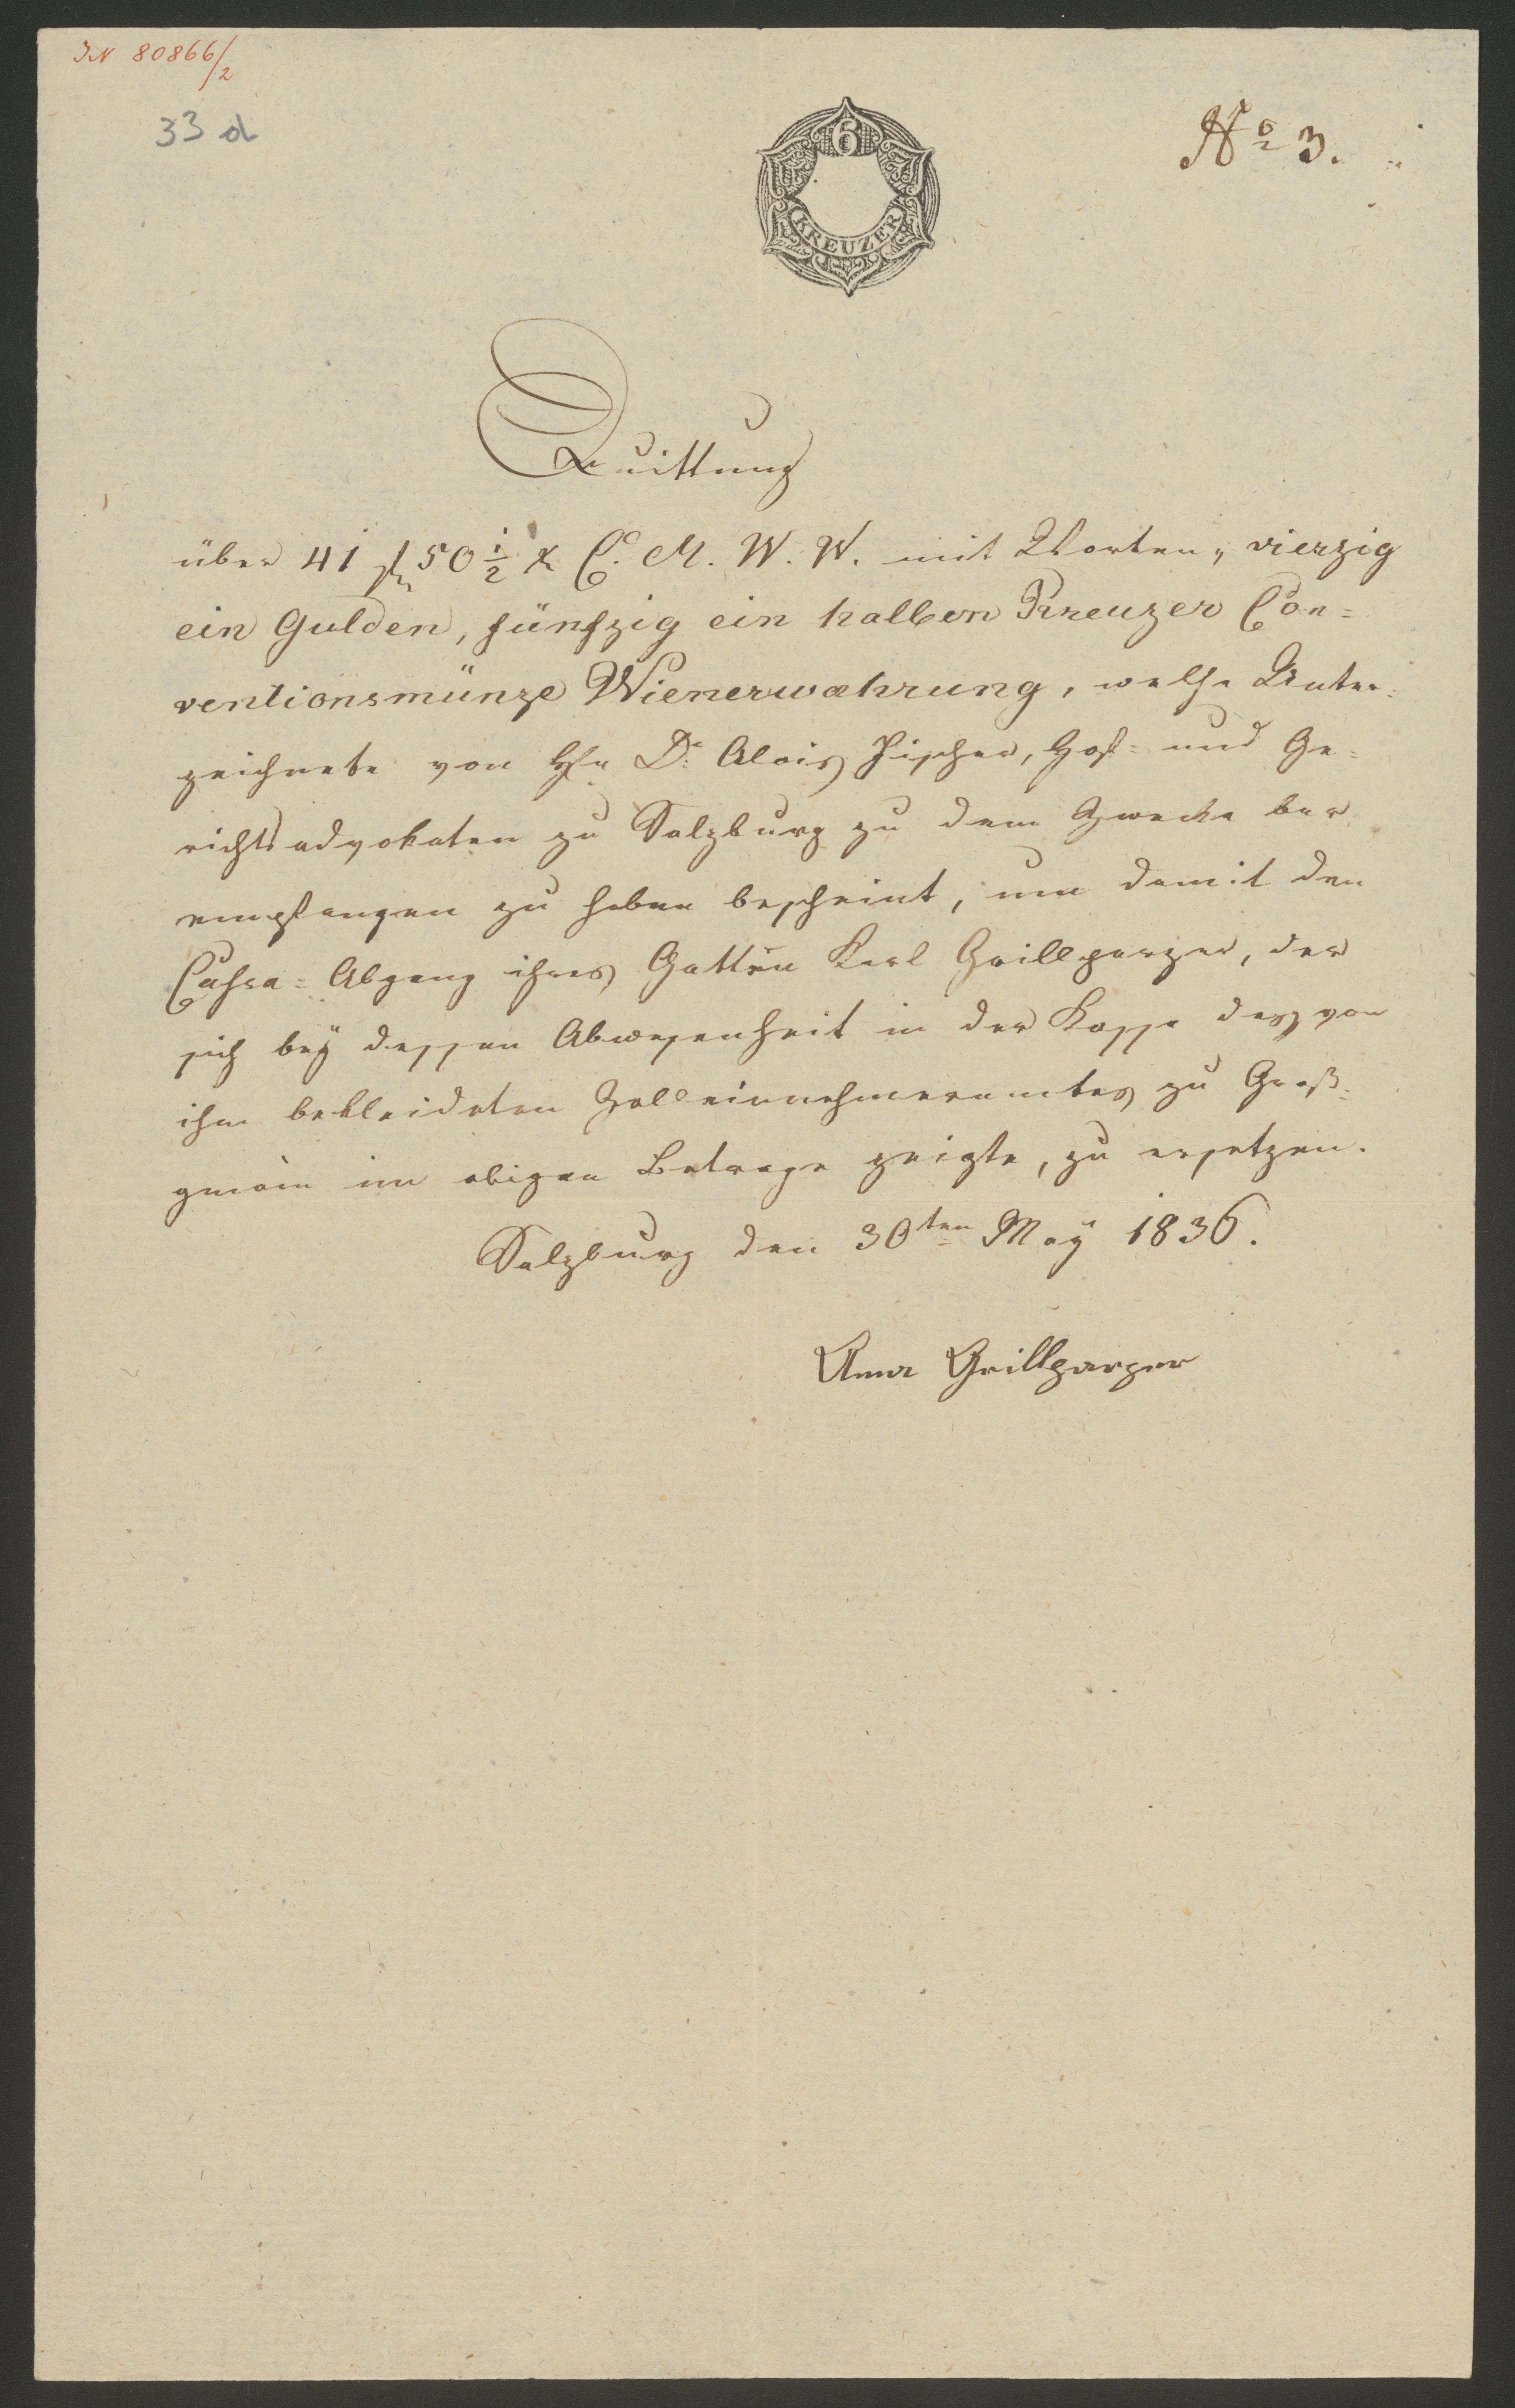 IN 80866/2
33 d
6
KREUZER
No 3.
Quittung
über 41 fl 50 1/2 x C. M. W. W. mit Worten „ vierzig
ein Gulden, fünfzig ein halben Kreuzer Con=
ventionsmünze Wienerwährung, welche Unter=
zeichnete von Hr. Dr. Alois Fischer, Hof= und Ge=
richtsadvokaten zu Salzburg zu dem Zwecke bar
empfangen zu haben bescheint, um damit den
Cassa=Abgang ihres Gatten Karl Grillparzer, der
sich bey dessen Abwesenheit in der Kasse des von
ihm bekleideten Zolleinnehmeramtes zu Groß=
gmain im obigen Betrage zeigte, zu ersetzen.
Salzburg den 30ten May 1836.
Anna Grillparzer